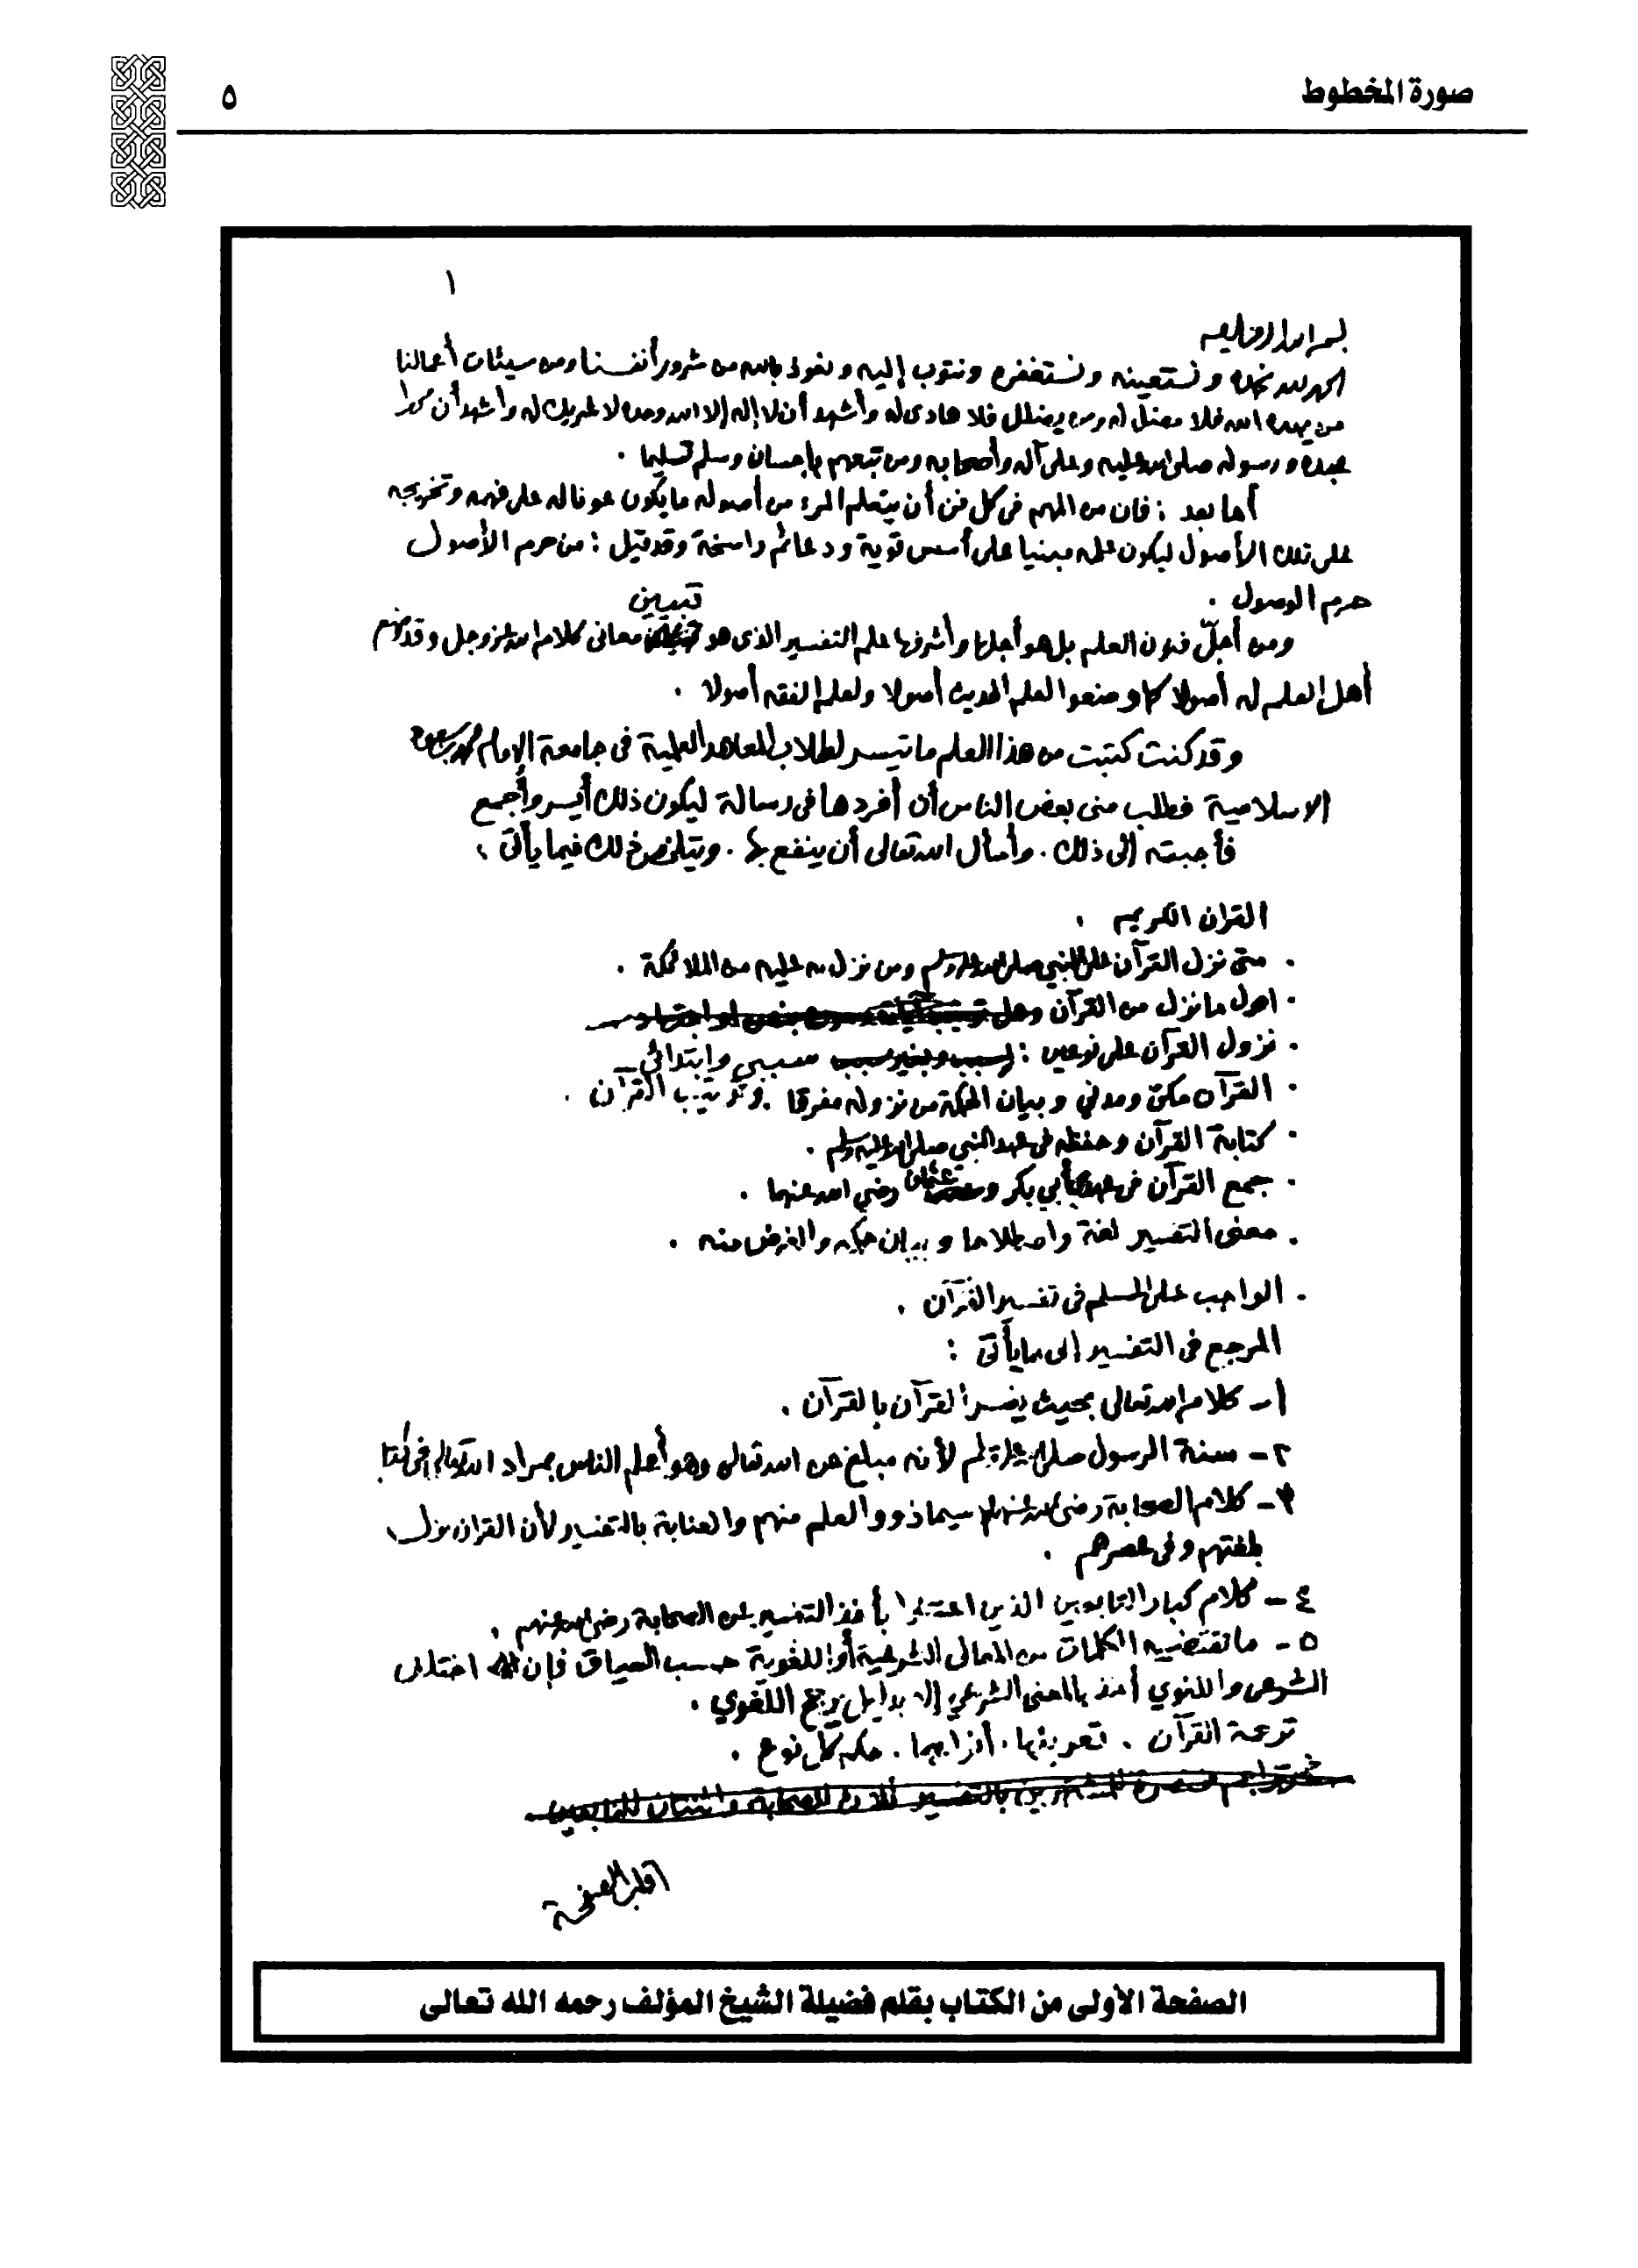 صورة المخطوط
٥
١
بسم الله الرحمن الرحيم
الحمد لله نحمده ونستعينه ونستغفره ونتوب إليه ونعوذ بالله من شرور أنفسنا ومن سيئات أعمالنا
من يهده الله فلا مضل له ومن يضلل فلا هادى له وأشهد أن لا إله إلا الله وحده لا شريك له وأشهد أن محمدا
عبده ورسوله صلى الله عليه وعلى آله وأصحابه ومن تبعهم بإحسان وسلم تسليما .
أما بعد : فان من المهم فى كل فن أن يتعلم المرء من أصوله ما يكون عونا له على فهمه وتخريجه
على تلك الأصول ليكون علمه مبنيا على أسس قوية ودعائم راسخة وقد قيل : من حرم الأصول
حرم الوصول .
تبيين
ومن أجلّ فنون العلم بل هو أجلها وأشرفها علم التفسير الذى هو معانى كلام الله عز وجل وقد وضع
أهل العلم له أصولا كما وضعوا لعلم الحديث أصولا ولعلم الفقه أصولا .
وقد كنت كتبت من هذا العلم ما تيسر لطلاب المعاهد العلمية فى جامعة الإمام محمد بن سعود
الاسلامية فطلب منى بعض الناس أن أفردها فى رسالة ليكون ذلك أيسر وأجمع
فأجبته إلى ذلك . وأسأل الله تعالى أن ينفع بها . ويتلخص ذلك فيما يأتى :
القران الكريم .
. متى نزل القرآن على النبي صلى الله عليه وسلم ومن نزل به عليه من الملائكة .
. اول ما نزل من القرآن
. نزول القرآن على نوعين : لسبب وبغير سبب سببي وابتدائي
. القرآن مكي ومدني وبيان الحكمة من نزوله مفرقا . وترتيب القرآن .
. كتابة القرآن وحفظه فى عهد النبي صلى الله عليه وسلم .
. جمع القرآن فى عهد أبي بكر وعثمان رضي الله عنهما .
. معنى التفسير لغة واصطلاحا وبيان حكمه والغرض منه .
. الواجب على المسلم فى تفسير القرآن .
المرجع فى التفسير إلى ما يأتى :
١ـ كلام الله تعالى بحيث يفسر القرآن بالقرآن .
٢ـ سنة الرسول صلى الله عليه وسلم لأنه مبلغ عن الله تعالى وهو أعلم الناس بمراد الله تعالى فى كتابه
٣ـ كلام الصحابة رضي الله عنهم لا سيما ذوو العلم منهم والعناية بالتفسير لأن القران نزل
بلغتهم وفى عصرهم .
٤ـ كلام كبار التابعين الذين اعتنوا بأخذ التفسير عن الصحابة رضي الله عنهم .
٥ـ ما تقتضيه الكلمات من المعانى الشرعية أو اللغوية حسب السياق فإن اختلف
الشرعى واللغوي أخذ بالمعنى الشرعي إلا بدليل يرجح اللغوي .
ترجمة القرآن . تعريفها . أنواعها . حكم كل نوع .
تراجم مختصرة للمشتهرين بالتفسير ثلاثة للصحابة واثنتان للتابعين
اقلب الصفحة
الصفحة الأولى من الكتاب بقلم فضيلة الشيخ المؤلف رحمه الله تعالى